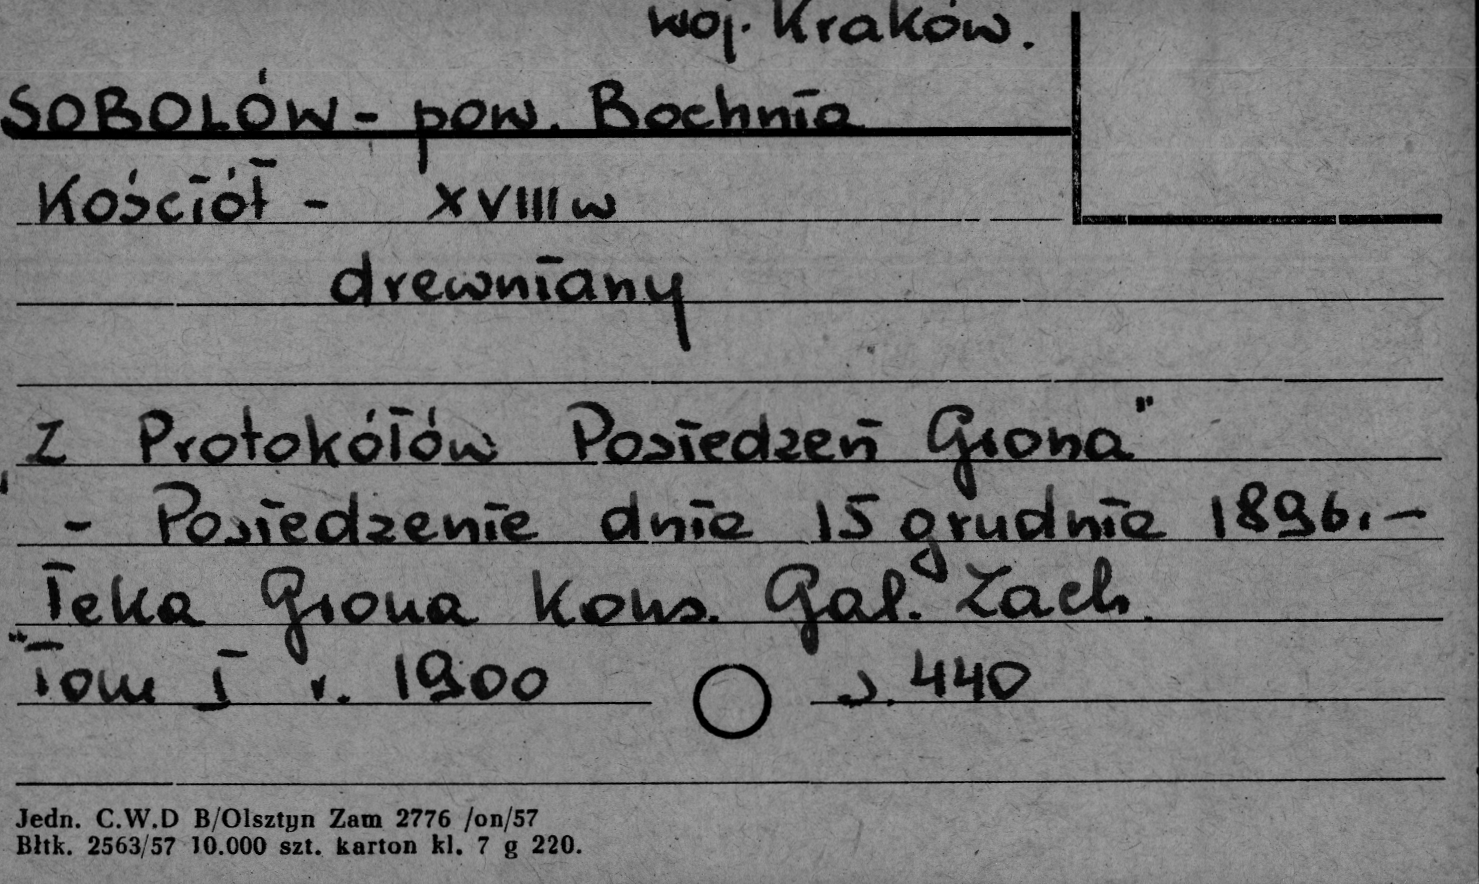 woj. Kraków.
SOBOLÓW - pow. Bochnia
Kościół - XVIII w
drewniany
„Z Protokółów Posiedzeń Grona"
- Posiedzenie dnia 15 grudnia 1896. -
Teka Grona Kons. Gal. Zach.
"Tom I r. 1900 s. 440
Jedn. C.W.D B/Olsztyn Zam 2776 /on/57
Błtk. 2563/57 10.000 szt. karton kl. 7 g 220.